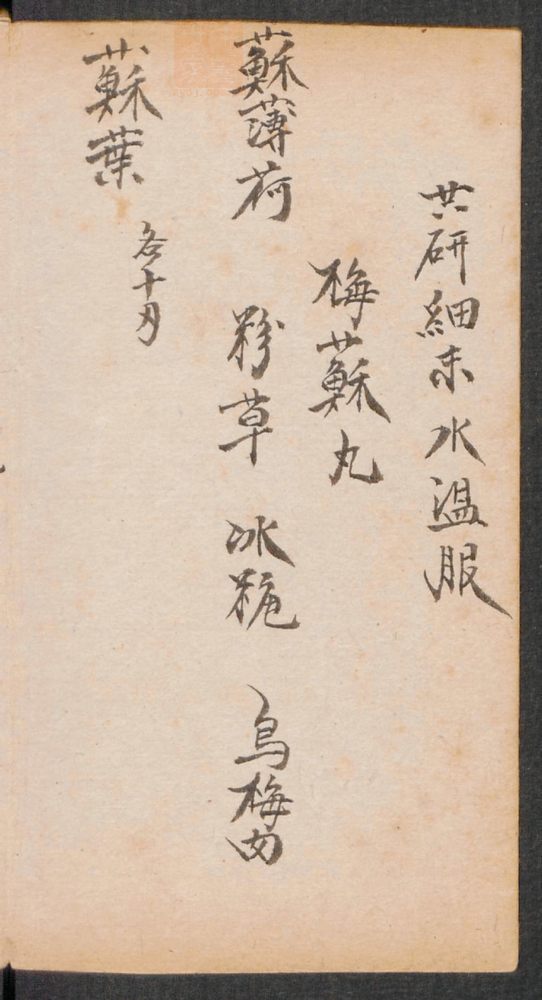 共研細末水温服
梅蘇丸
蘇薄荷 粉草 冰糖 烏梅肉
蘇葉 各十刃